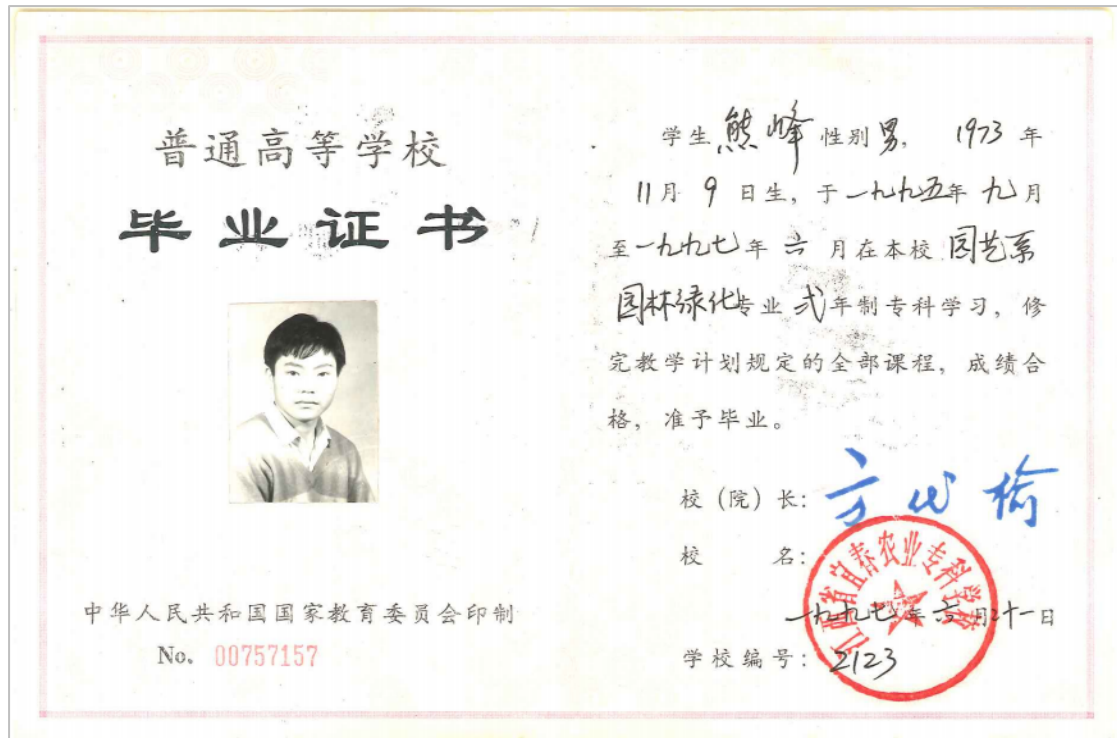 普通高等学校
毕业证书
中华人民共和国国家教育委员会印制
No. 00757157
学生 熊峰 性别 男， 1973 年
11 月 9 日生，于 一九九五 年 九 月
至 一九九七 年 六 月在本校 园艺系
园林绿化 专业 弍 年制专科学习，修
完教学计划规定的全部课程，成绩合
格，准予毕业。
校（院）长：
校 名：
江西省宜春农业专科学校
一九九七 年 六 月 二十一 日
学校编号：2123